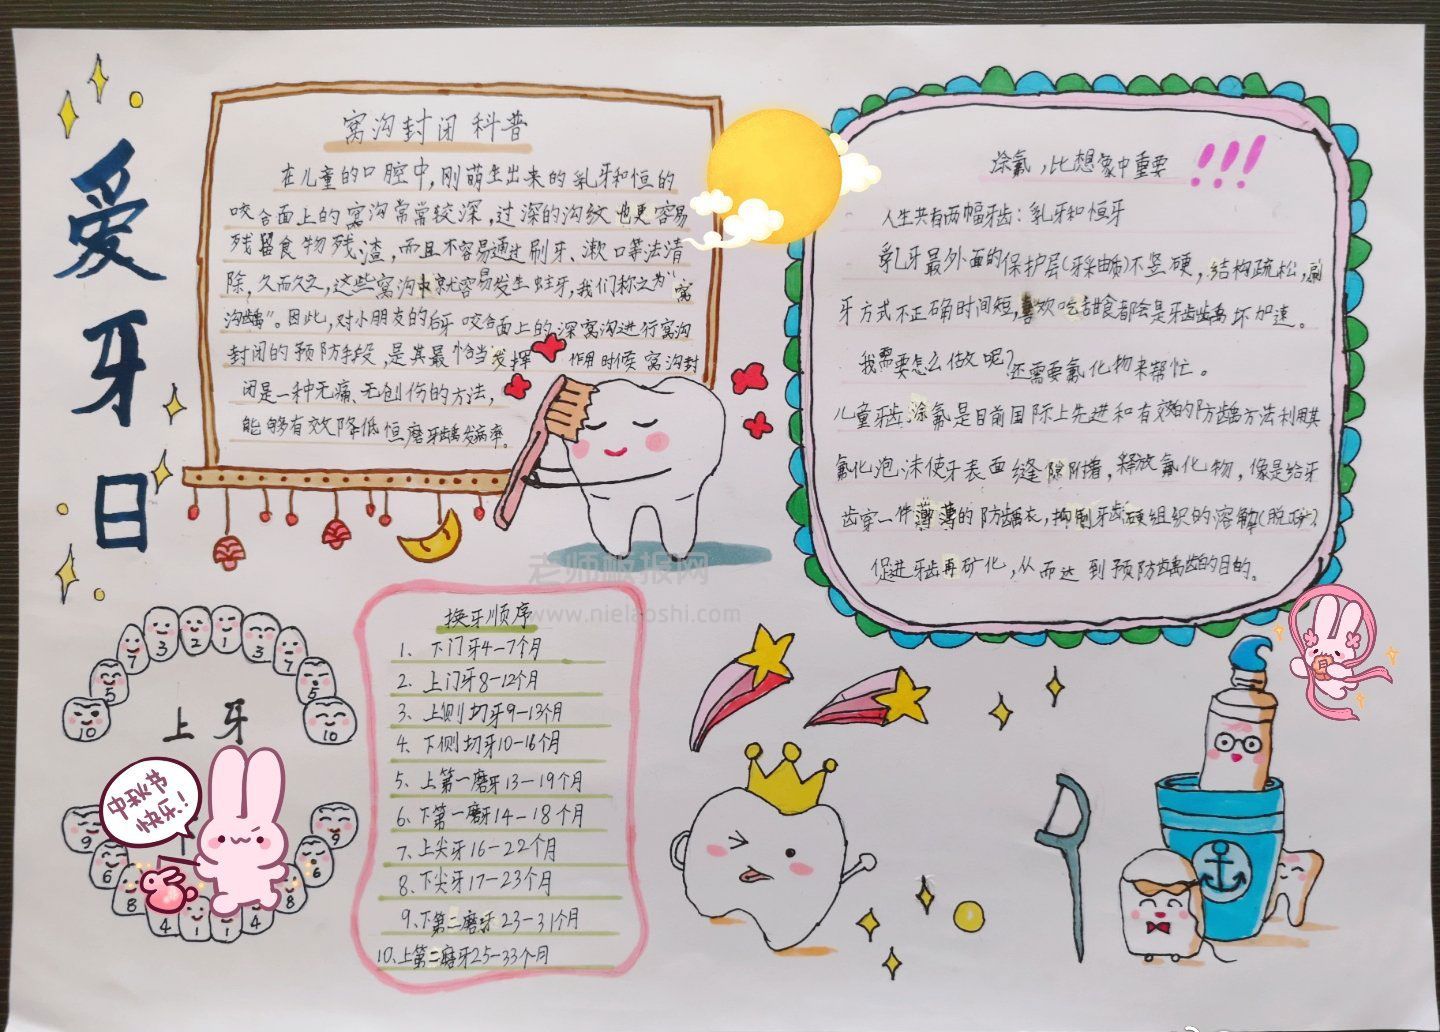 爱牙日
窝沟封闭 科普
在儿童的口腔中,刚萌生出来的乳牙和恒的
咬合面上的窝沟常常较深,过深的沟纹也更容易
残留食物残渣,而且不容易通过刷牙、漱口等法清
除,久而久之,这些窝沟中就容易发生蛀牙,我们称之为"窝
沟龋"。因此,对小朋友的后牙咬合面上的深窝沟进行窝沟
封闭的预防手段,是其最恰当发挥 作用时候 窝沟封
闭是一种无痛、无创伤的方法,
能够有效降低恒磨牙龋发病率。
涂氟,比想象中重要 !!!
人生共有两幅牙齿:乳牙和恒牙
乳牙最外面的保护层(牙釉质)不坚硬,结构疏松,刷
牙方式不正确时间短,喜欢吃甜食都会是牙齿龋坏加速。
我需要怎么做呢?还需要氟化物来帮忙。
儿童牙齿涂氟是目前国际上先进和有效的防龋方法利用其
氟化泡沫使牙表面缝隙附增,释放氟化物,像是给牙
齿穿一件薄薄的防龋衣,抑制牙齿硬组织的溶解(脱矿)
促进牙齿再矿化,从而达到预防龋齿的目的。
老师板报网
www.nielaoshi.com
换牙顺序
1、下门牙4-7个月
2、上门牙8-12个月
3、上侧切牙9-13个月
4、下侧切牙10-16个月
5、上第一磨牙13-19个月
6、下第一磨牙14-18个月
7、上尖牙16-22个月
8、下尖牙17-23个月
9、下第二磨牙23-31个月
10、上第二磨牙25-33个月
10 5 7 3 2 1 3 7 5 10
上牙
中秋节
快乐!
9 6 8 4 1 1 4 8 6 9